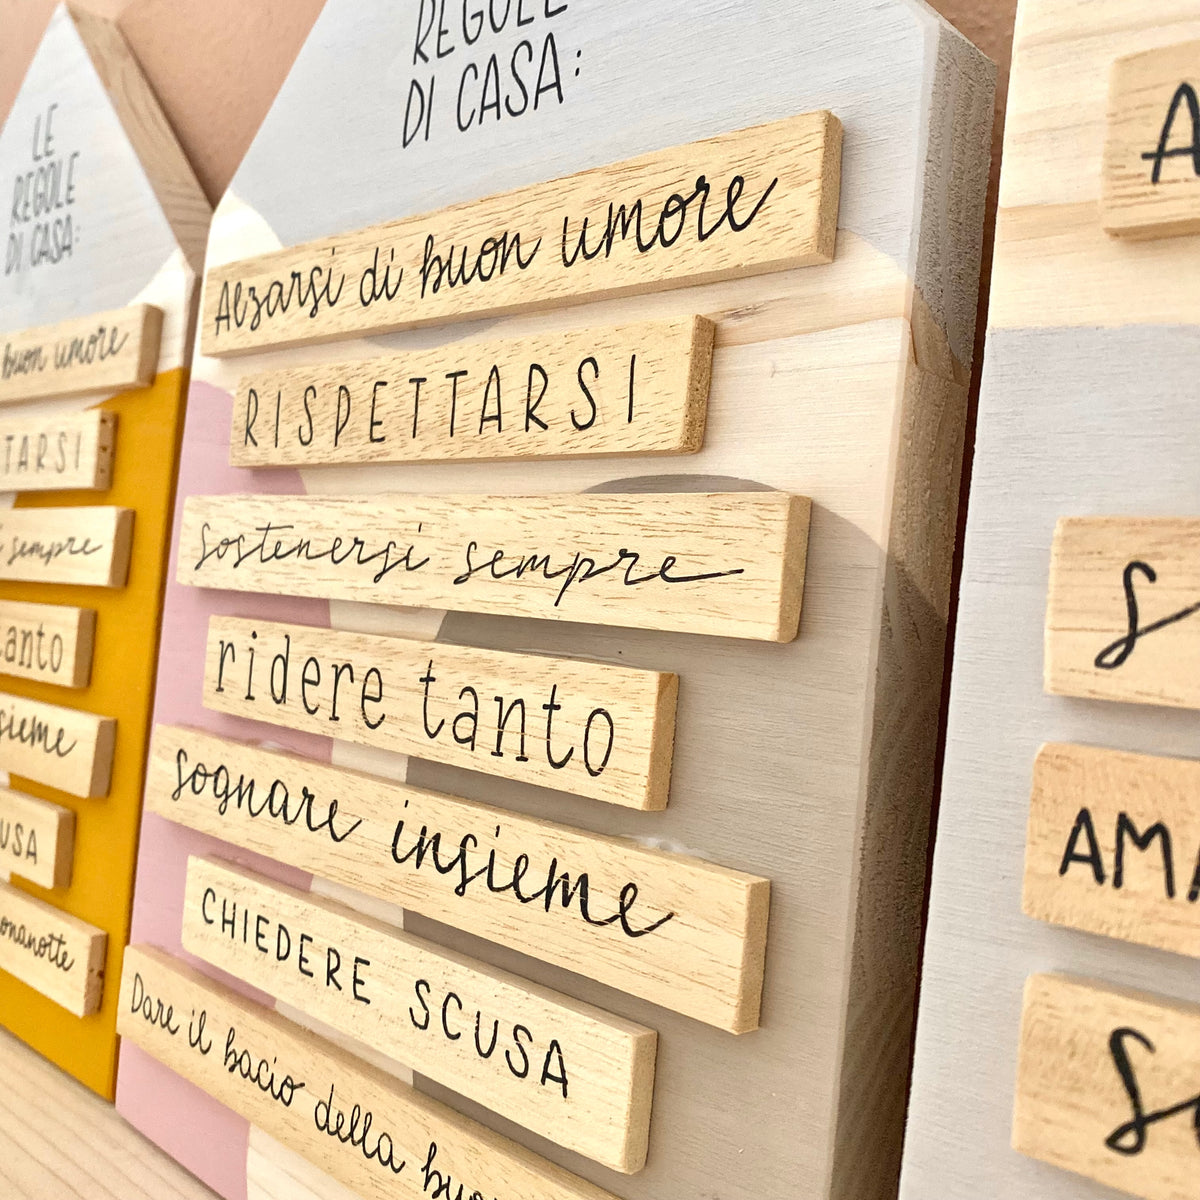 LE
REGOLE
DI CASA:
buon umore
TARSI
sempre
tanto
sieme
USA
onanotte
REGOLE
DI CASA:
Alzarsi di buon umore
RISPETTARSI
Sostenersi sempre
ridere tanto
sognare insieme
CHIEDERE SCUSA
Dare il bacio della buon
A
S
AMA
So